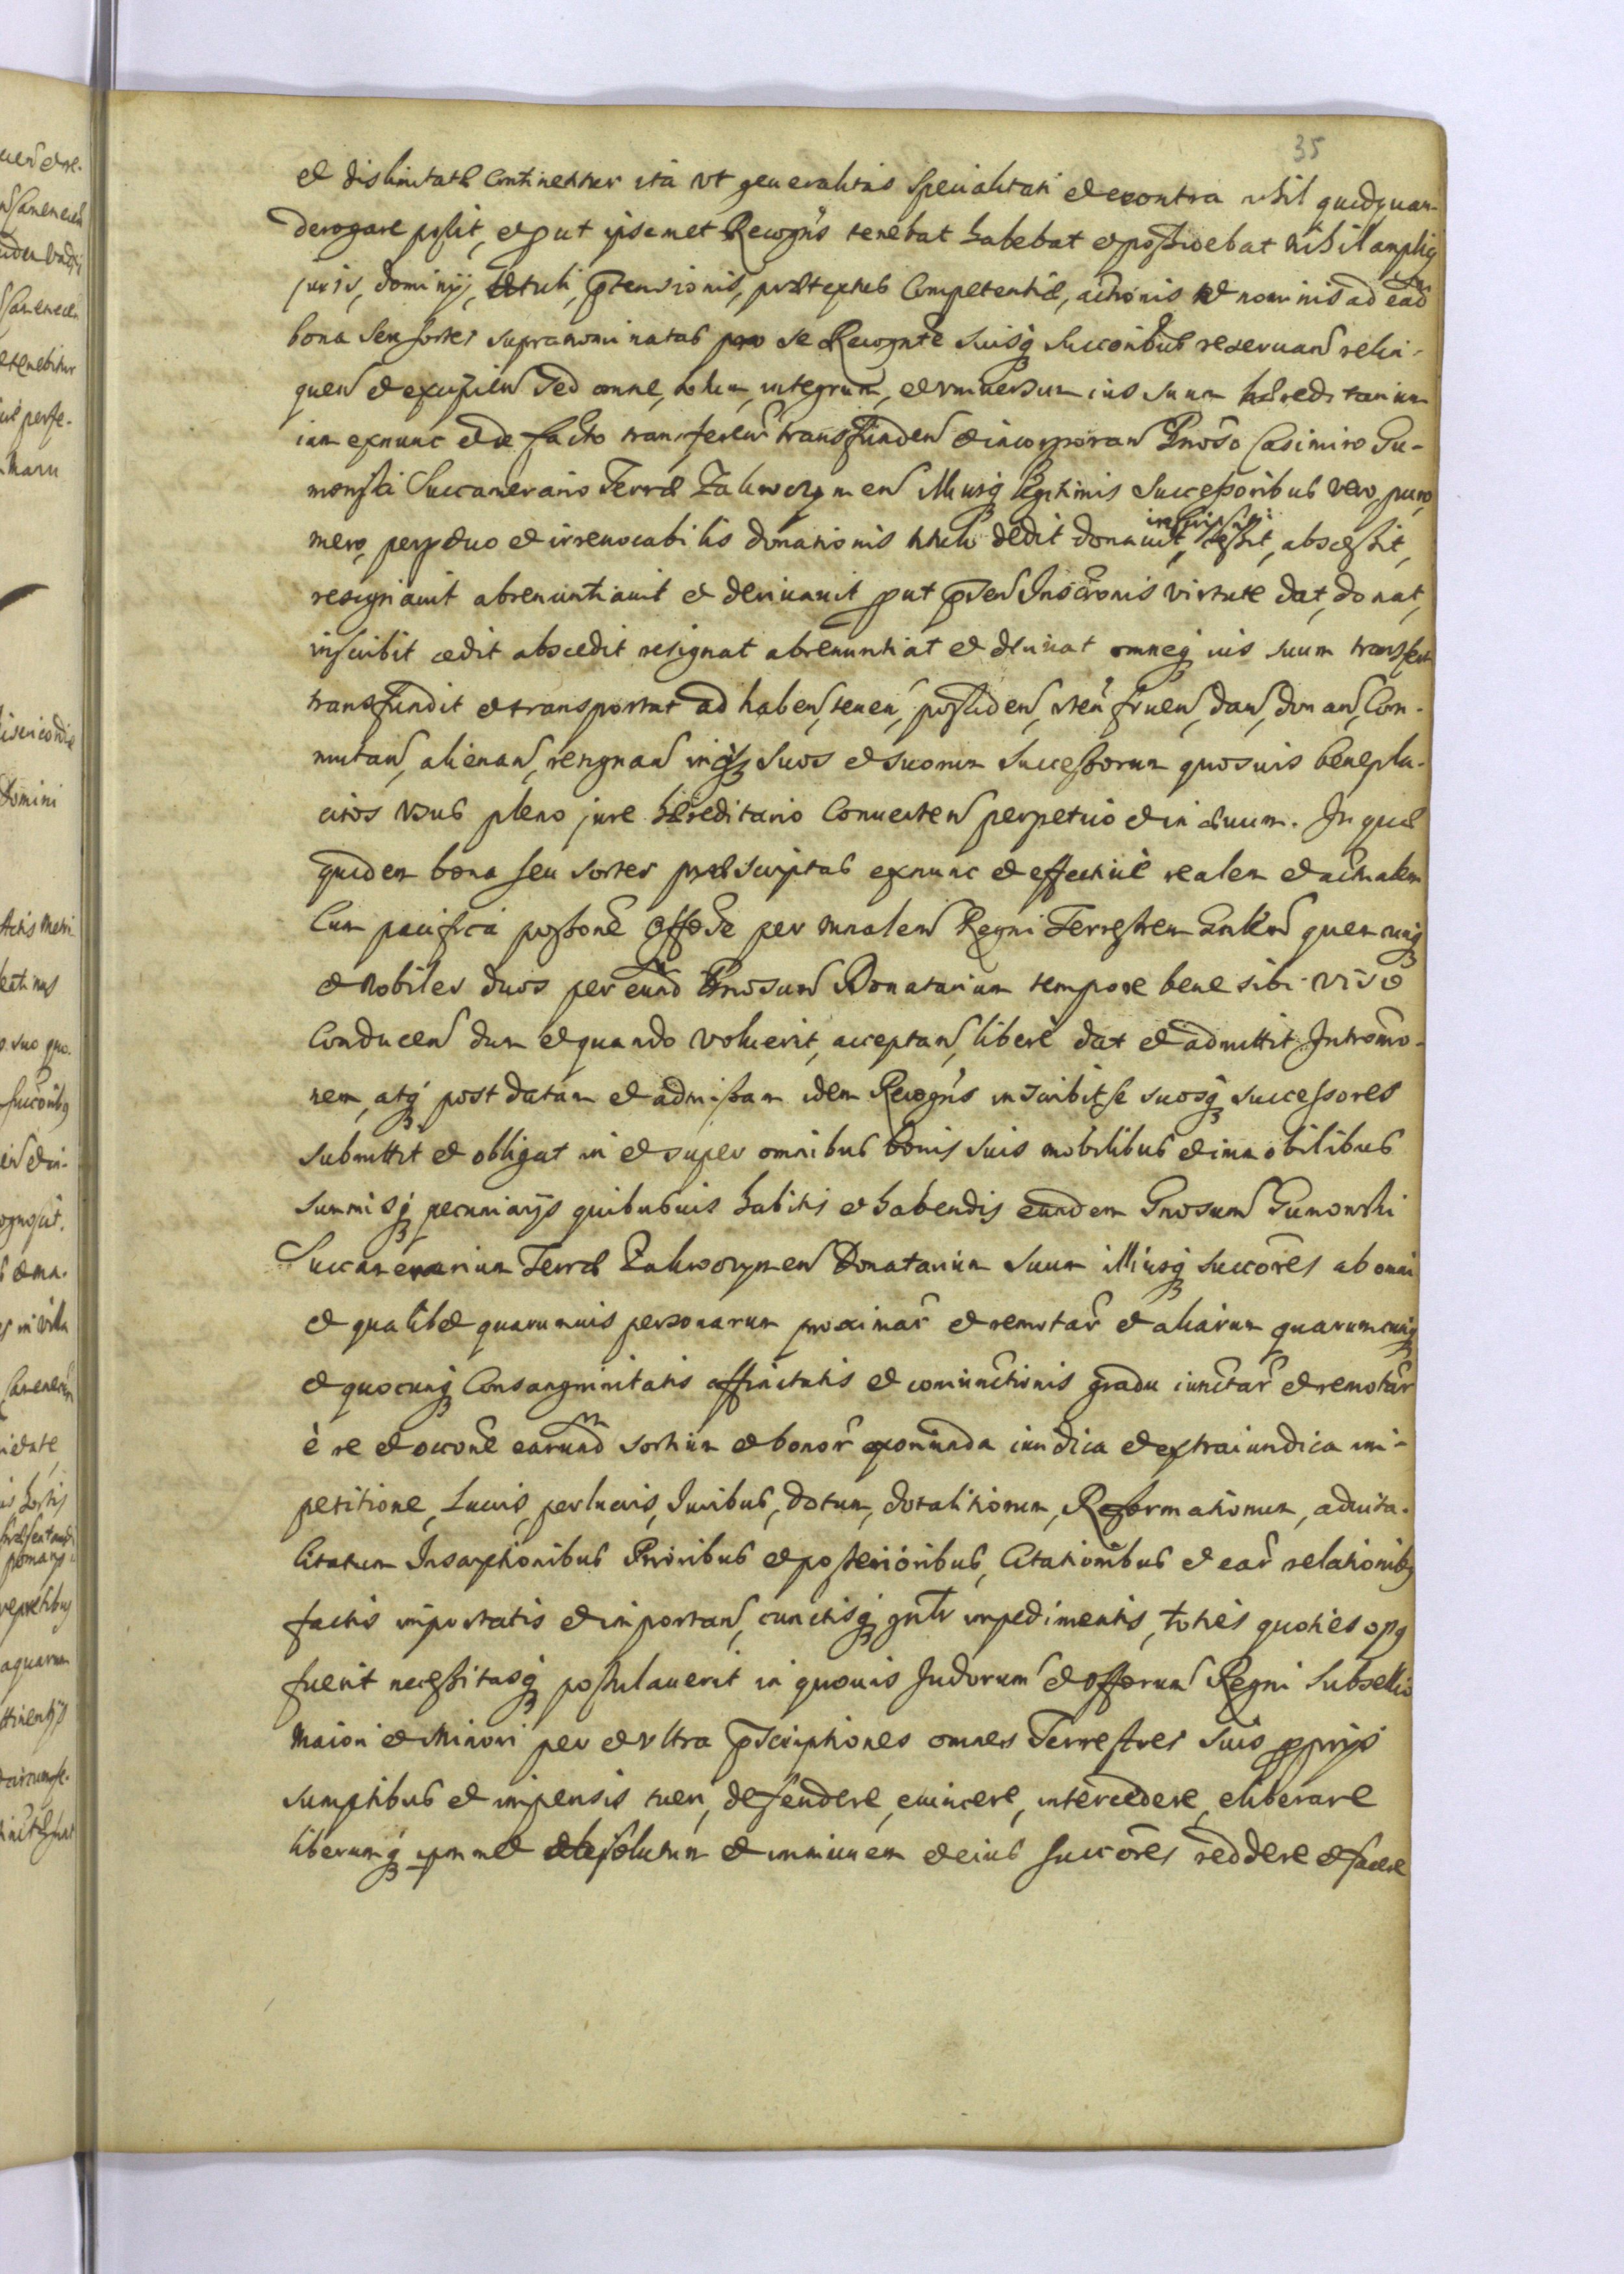 35
et dislimitatæ continentur ità vt generalitas specialitati et econtra nihil quidquam
derogare possit, et put ipsemet Recogns tenebat habebat et possidebat nihil ampliq
juris, dominij, tituli, ptensionis, prætextus competentiæ, actionis et nominis ad eãd
bona seu sortes supranominatas pro se Recognte suisq succoribus reseruan relin-
quen et excipien sed omne, totum, integrum, et vniuersum ius suum hæreditarium
iam exnunc et de facto transferen transfunden et incorporan Gnoso Casimiro Gu-
mowski Succamerario Terræ Zakroczymen illiusq legitimis Successoribus vero, puro
mero, perpetuo et irreuocabilis donationis titulo dedit donauit, inscripsit, cessit, abscessit,
resignauit abrenuntiauit et deriuauit put pñtis Inscronis virtute dat, donat,
inscribit cedit abscedit resignat abrenuntiat et deriuat omneq ius suum transfert
transfundit et transportat ad haben, tenen, possiden, vten fruen, dan, donan, Com-
mutan, alienan, resignan inq suos et suorum successorum quosuis benepla-
citos vsus pleno jure hæreditario Conuerten perpetuò et in æuum. In quæ
quidem bona seu sortes præscriptas exnunc et effectiuè realem et actualem
Cum pacifica possone Offose per mnalem Regni Terrestrem Gnlem quemuis
et Nobiles duos per eund Gnosum Donatarium tempore bene sibi viso
Conducen dum et quando voluerit, acceptan, liberè dat et admittit Intromo-
nem, atq post datam et admissam idem Recogns inscribit se suosq successores
submittit et obligat in et super omnibus bonis suis mobilibus et immobilibus
summisq pecuniarijs quibusuis habitis et habendis eundem Gnosum Gumowski
Succamerarium Terræ Zakroczymen Donatarium suum illiusq succores ab omni
et qualibet quarumuis personarum proximar et remotar et aliarum quarumcunq
et quocunq Consanguinitatis affinitatis et coniunctionis gradu iunctar et remotar
è re et occone earund sortium et bonor exoriunda iuridica et extraiuridica im-
petitione, Lucris, perlucris, Iuribus, dotum, dotalitiorum, Reformationum, aduita-
litatum Inscriptionibus Prioribus et posterioribus, Citationibus et ear relationibq
factis importatis et importan, cunctisq gntr impedimentis, toties quoties opq
fuerit necessitasq postulauerit in quouis Iudiorum et Offiorum Regni Subsellio
Maiori et Minori per et vltra pscriptiones omnes Terrestres suis pprijs
sumptibus et impensis tueri, defendere, euincere, intercedere, eliberare
liberumq ipsummet absolutum et immunem et eius succores reddere et facere